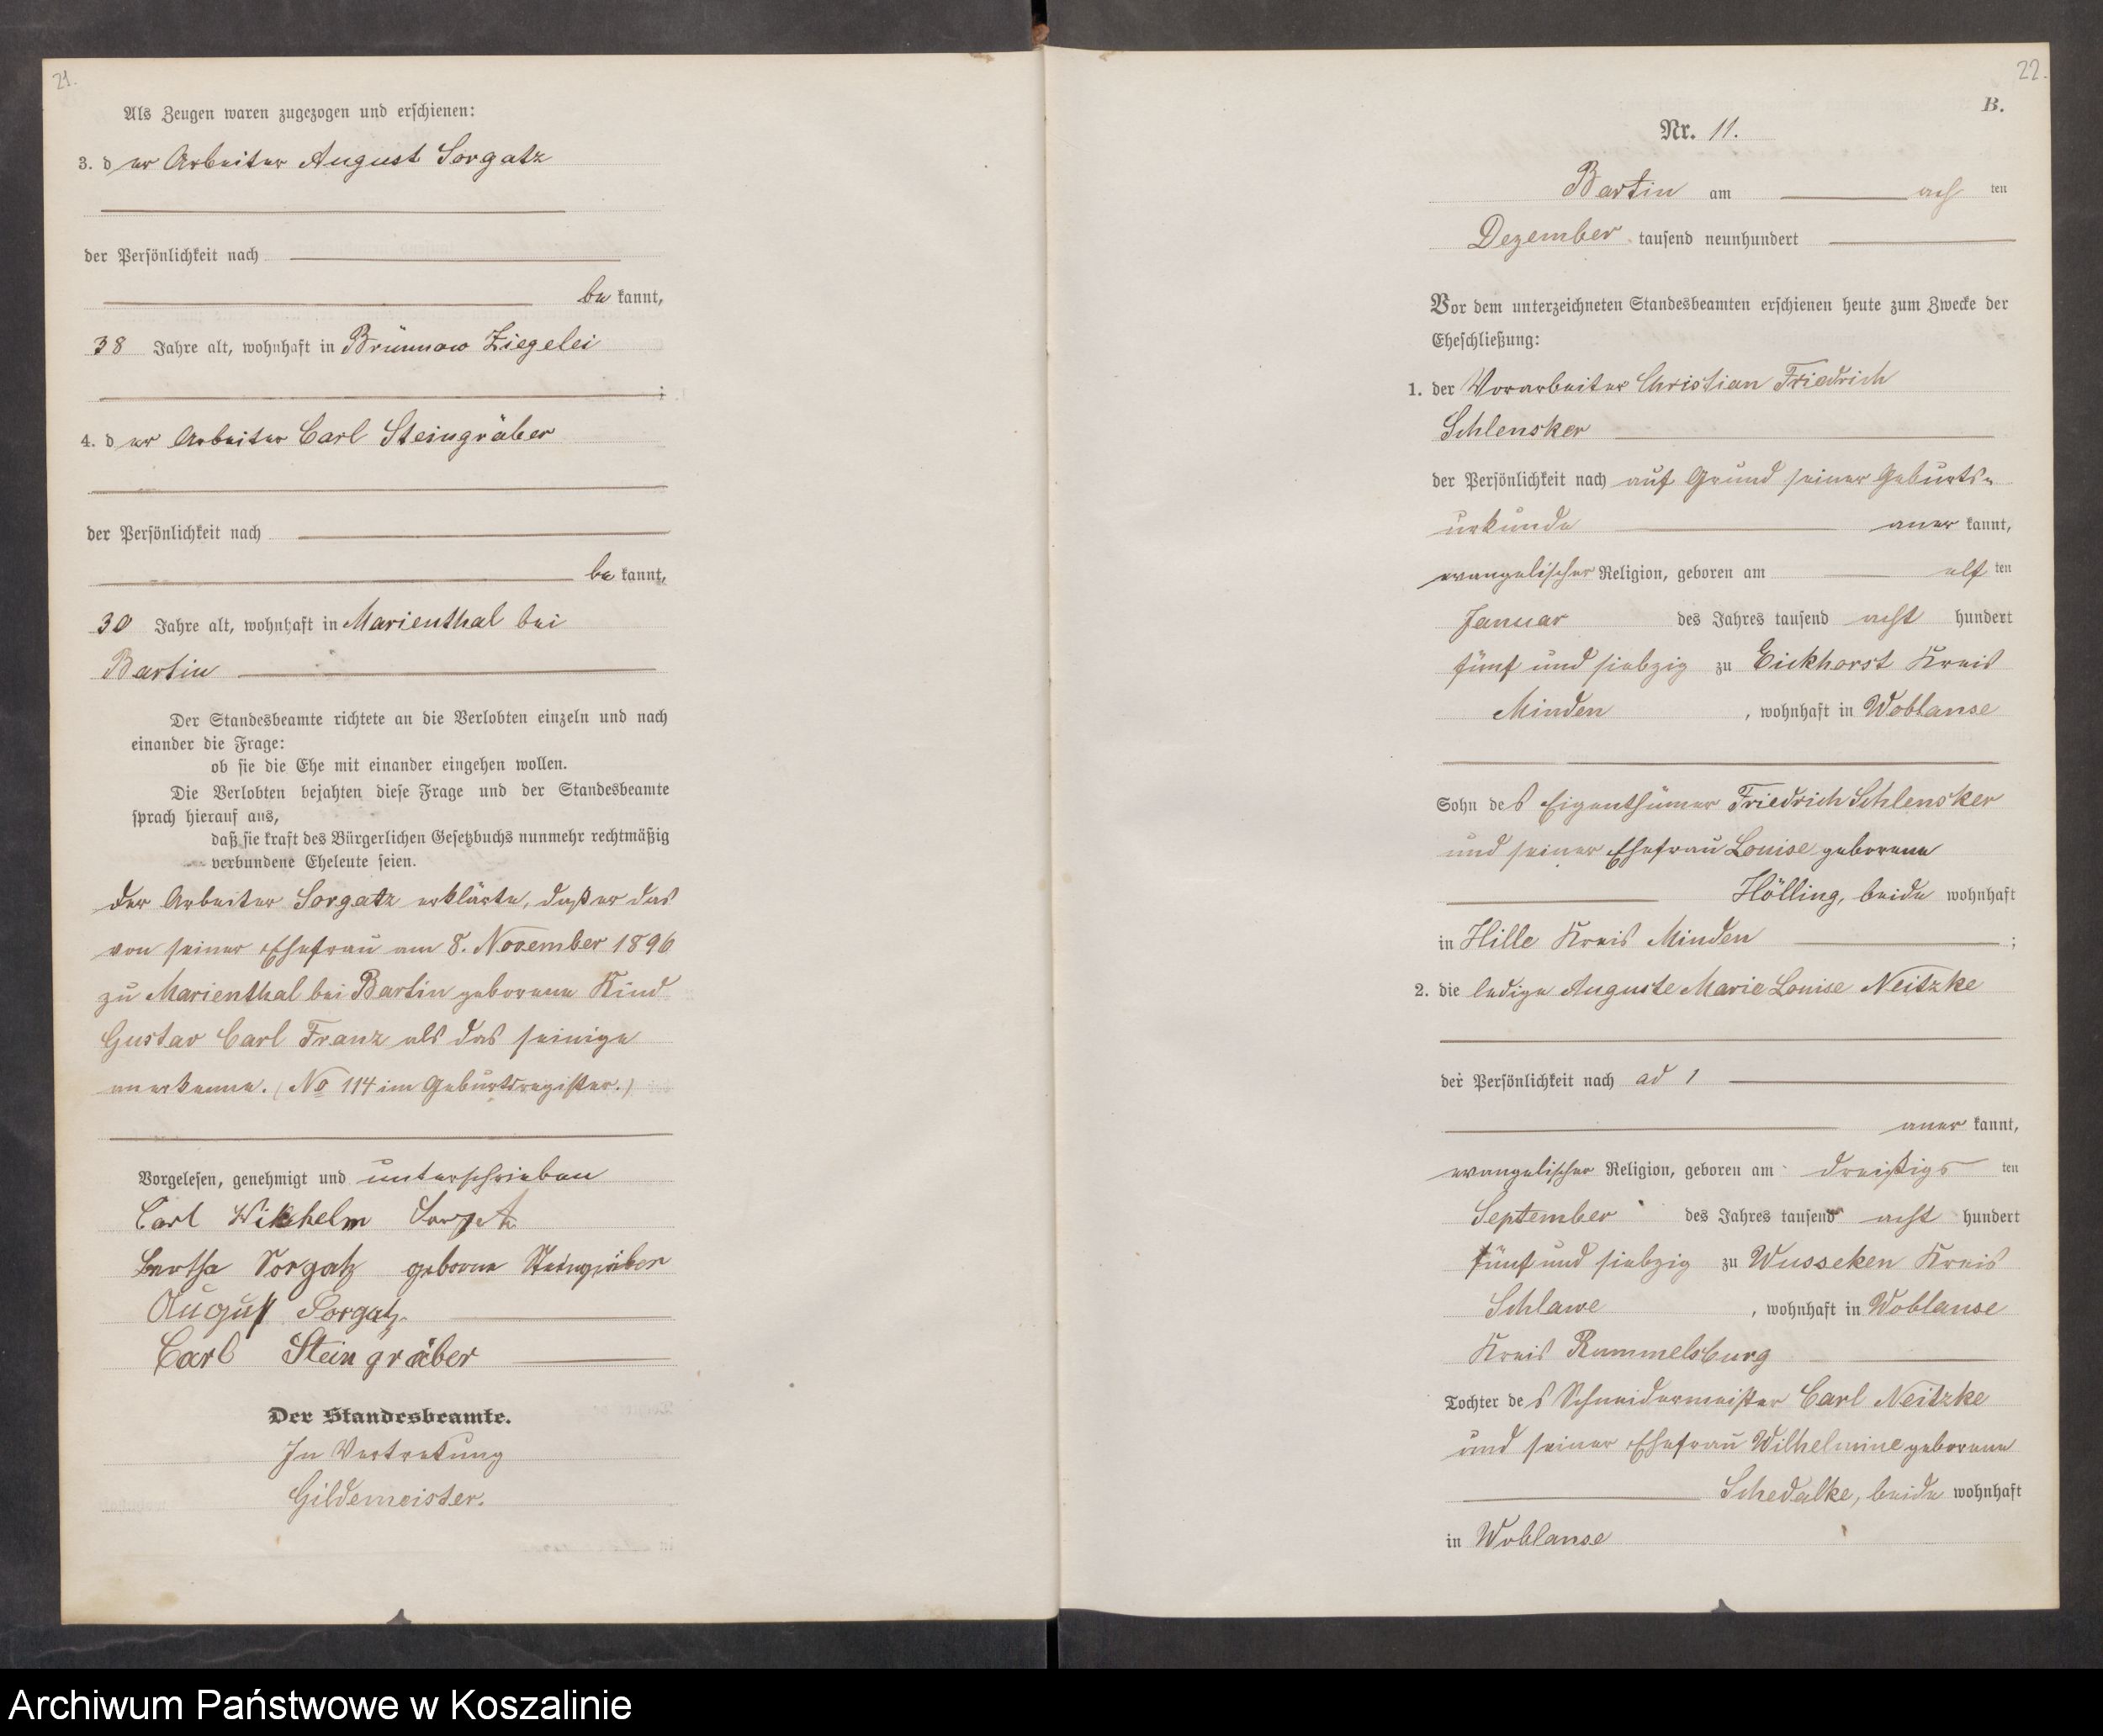 21.
Als Zeugen waren zugezogen und erschienen:
3. der Arbeiter August Sorgatz
der Persönlichkeit nach
bekannt,
38 Jahre alt, wohnhaft in Brünnow Ziegelei
;
4. der Arbeiter Carl Steingräber
der Persönlichkeit nach
bekannt,
30 Jahre alt, wohnhaft in Marienthal bei
Bartin
Der Standesbeamte richtete an die Verlobten einzeln und nach
einander die Frage:
ob sie die Ehe mit einander eingehen wollen.
Die Verlobten bejahten diese Frage und der Standesbeamte
sprach hierauf aus,
daß sie kraft des Bürgerlichen Gesetzbuchs nunmehr rechtmäßig
verbundene Eheleute seien.
Der Arbeiter Sorgatz erklärte, daß er das
von seiner Ehefrau am 8. November 1896
zu Marienthal bei Bartin geborene Kind
Gustav Carl Franz als das seinige
anerkenne. (No 114 im Geburtsregister.)
Vorgelesen, genehmigt und unterschrieben
Carl Wilhelm Sorgatz
Bertha Sorgatz geborne Steingräber
August Sorgatz
Carl Steingräber
Der Standesbeamte.
In Vertretung
Gildemeister.
22.
B.
Nr. 11.
Bartin am achten
Dezember tausend neunhundert
Vor dem unterzeichneten Standesbeamten erschienen heute zum Zwecke der
Eheschließung:
1. der Vorarbeiter Christian Friedrich
Schlensker
der Persönlichkeit nach auf Grund seiner Geburts-
urkunde anerkannt,
evangelischer Religion, geboren am elften
Januar des Jahres tausend achthundert
fünf und siebzig zu Eickhorst Kreis
Minden, wohnhaft in Woblanse
Sohn des Eigenthümer Friedrich Schlensker
und seiner Ehefrau Louise geborene
Hölling, beide wohnhaft
in Hille Kreis Minden ;
2. die ledige Auguste Marie Louise Neitzke
der Persönlichkeit nach ad 1
anerkannt,
evangelischer Religion, geboren am dreißigsten
September des Jahres tausend achthundert
fünf und siebzig zu Wusseken Kreis
Schlawe, wohnhaft in Woblanse
Kreis Rummelsburg
Tochter des Schneidermeister Carl Neitzke
und seiner Ehefrau Wilhelmine geborene
Schedalke, beide wohnhaft
in Woblanse
Archiwum Państwowe w Koszalinie